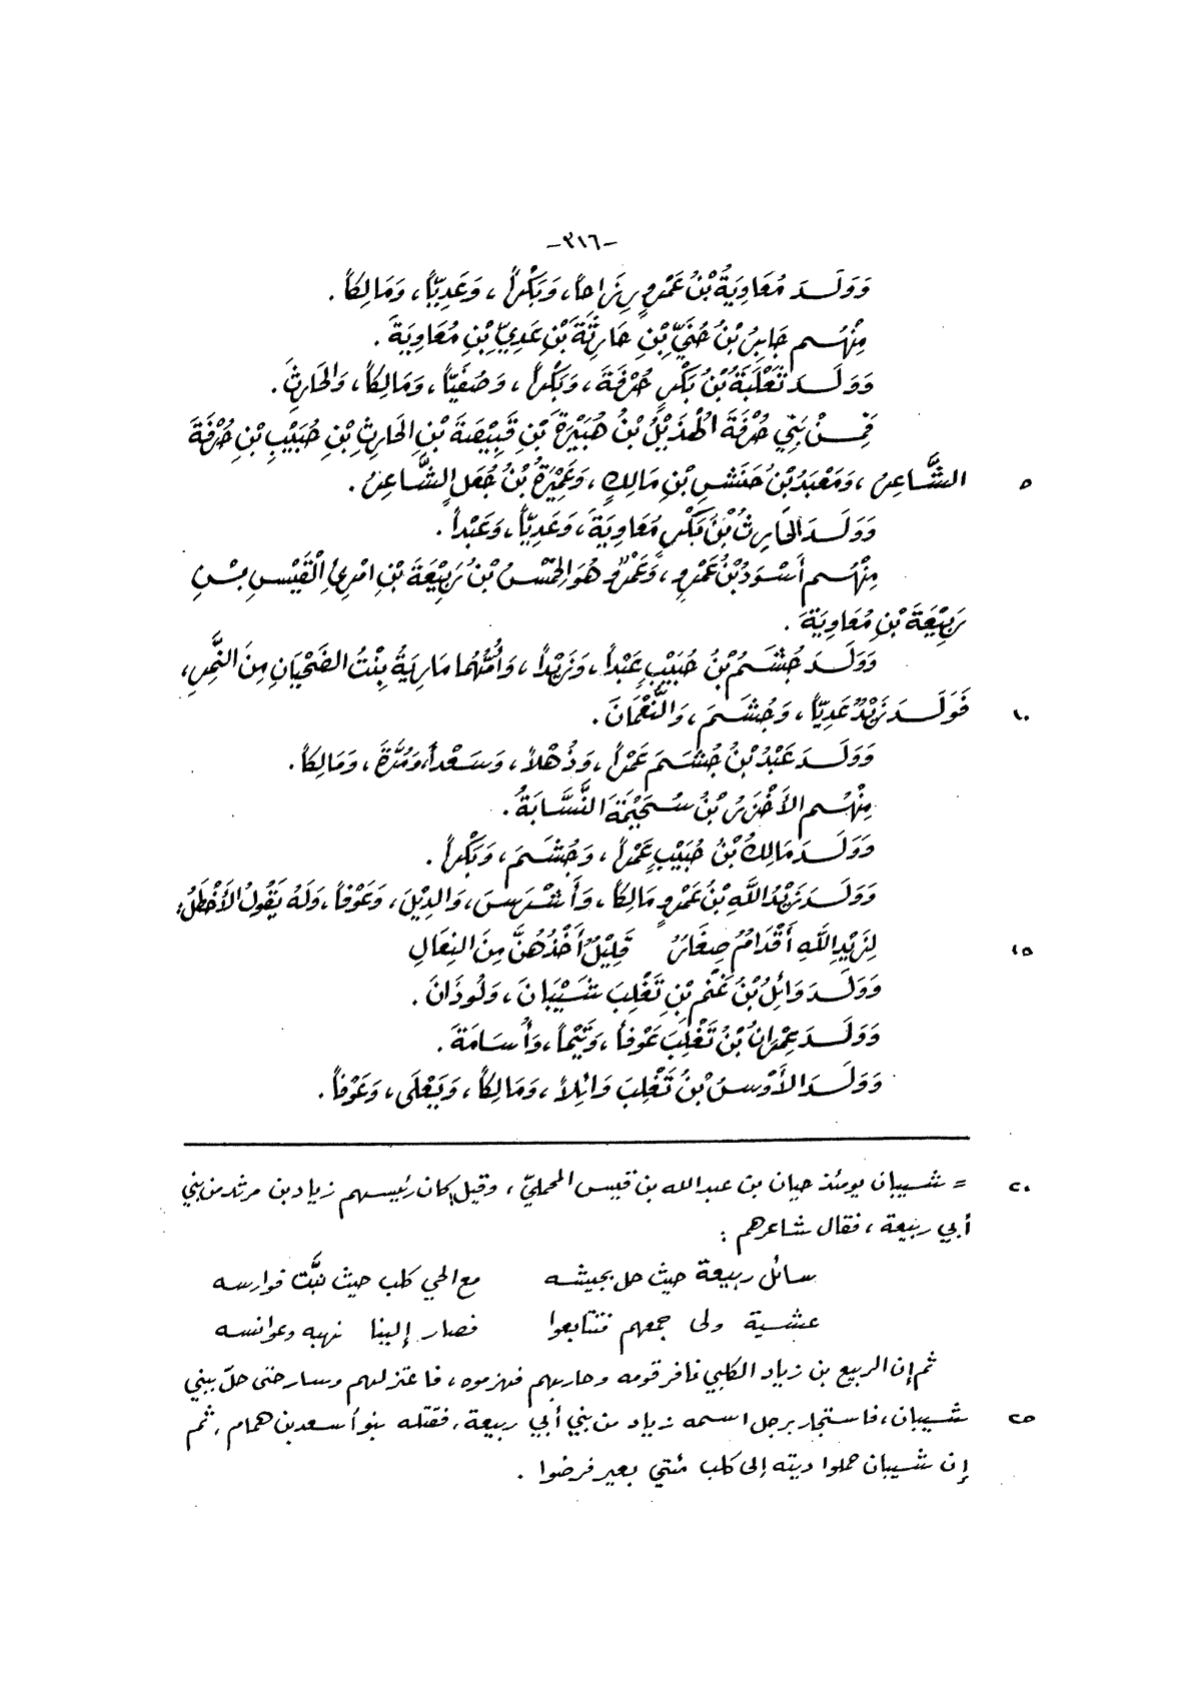 -٣١٦-
وَوَلَدَ مُعَاوِيَةُ بْنُ عَمْرٍو رِزَاحاً، وَبَكْراً، وَعَدِيّاً، وَمَالِكاً.
مِنْهُم جَابِرُ بْنُ حُنَيِّ بْنِ حَارِثَةَ بْنِ عَدِيِّ بْنِ مُعَاوِيَةَ.
وَوَلَدَ ثَعْلَبَةُ بْنُ بَكْرٍ حُرْفَةَ، وَبَكْراً، وَصُفَيّاً، وَمَالِكاً، وَالحَارِثَ.
فَمِنْ بَنِي حُرْفَةَ الهُذَيْلُ بْنُ هُبَيْرَةَ بْنِ قَبِيْصَةَ بْنِ الحَارِثِ بْنِ حُبَيْبِ بْنِ حُرْفَةَ
٥ الشَّاعِرُ، وَمَعْبَدُ بْنُ حَنَشِ بْنِ مَالِكٍ، وَعَمِيْرَةُ بْنُ جُعَلٍ الشَّاعِرُ.
وَوَلَدَ الحَارِثُ بْنُ بَكْرٍ مُعَاوِيَةَ، وَعَدِيّاً، وَعَبْداً.
مِنْهُم أَسْوَدُ بْنُ عَمْرٍو، وَعَمْرٌو هُوَ الحِمْسُ بْنُ رَبِيْعَةَ بْنِ امْرِئِ الْقَيْسِ بْنِ
رَبِيْعَةَ بْنِ مُعَاوِيَةَ.
وَوَلَدَ جُشَمُ بْنُ حُبَيْبٍ عَبْداً، وَزَيْداً، وَأُمُّهُمَا مَارِيَةُ بِنْتُ الضَّحْيَانِ مِنَ النَّمِرِ،
١٠ فَوَلَدَ زَيْدٌ عَدِيّاً، وَجُشَمَ، وَالنُّعْمَانَ.
وَوَلَدَ عَبْدُ بْنُ جُشَمَ عَمْراً، وَذُهْلاً، وَسَعْداً، وَمُرَّةَ، وَمَالِكاً.
مِنْهُم الأَخْزَرُ بْنُ سُحَيْمَةَ النَّسَّابَةُ.
وَوَلَدَ مَالِكُ بْنُ حُبَيْبٍ عَمْراً، وَجُشَمَ، وَبَكْراً.
وَوَلَدَ زَيْدُ اللَّهِ بْنُ عَمْرٍو مَالِكاً، وَأَشْرَسَ، وَالدِّيْلَ، وَعَوْفاً، وَلَهُ يَقُولُ الأَخْطَلُ:
١٥ لِزَيْدِ اللَّهِ أَقْدَامٌ صِغَارٌ قَلِيْلٌ أَخْذُهُنَّ مِنَ النِعَالِ
وَوَلَدَ وَائِلُ بْنُ غَنْمِ بْنِ تَغْلِبَ شَيْبَانَ، وَلُوذَانَ.
وَوَلَدَ عِمْرَانُ بْنُ تَغْلِبَ عَوْفاً، وَتَيْماً، وَأُسَامَةَ.
وَوَلَدَ الأَوْسُ بْنُ تَغْلِبَ وَائِلاً، وَمَالِكاً، وَيَعْلَى، وَعَوْفاً.
٢٠ = شيبان يومئذ حيان بن عبدالله بن قيس المحلميّ، وقيل كان رئيسهم زياد بن مرثد من بني
أبي ربيعة، فقال شاعرهم:
سائل ربيعة حيث حل بجيشه مع الحي كلب حيث لبَّت فوارسه
عشية ولى جمعهم فتتابعوا فصار إلينا نهبه وعوانسه
ثم إن الربيع بن زياد الكلبي نافر قومه وحاربهم فهزموه، فاعتزلهم وسار حتى حلّ ببني
٢٥ شيبان، فاستجار برجل اسمه زياد من بني أبي ربيعة، فقتله بنو أسعد بن همام، ثم
إن شيبان حملوا ديته إلى كلب مئتي بعير فرضوا.